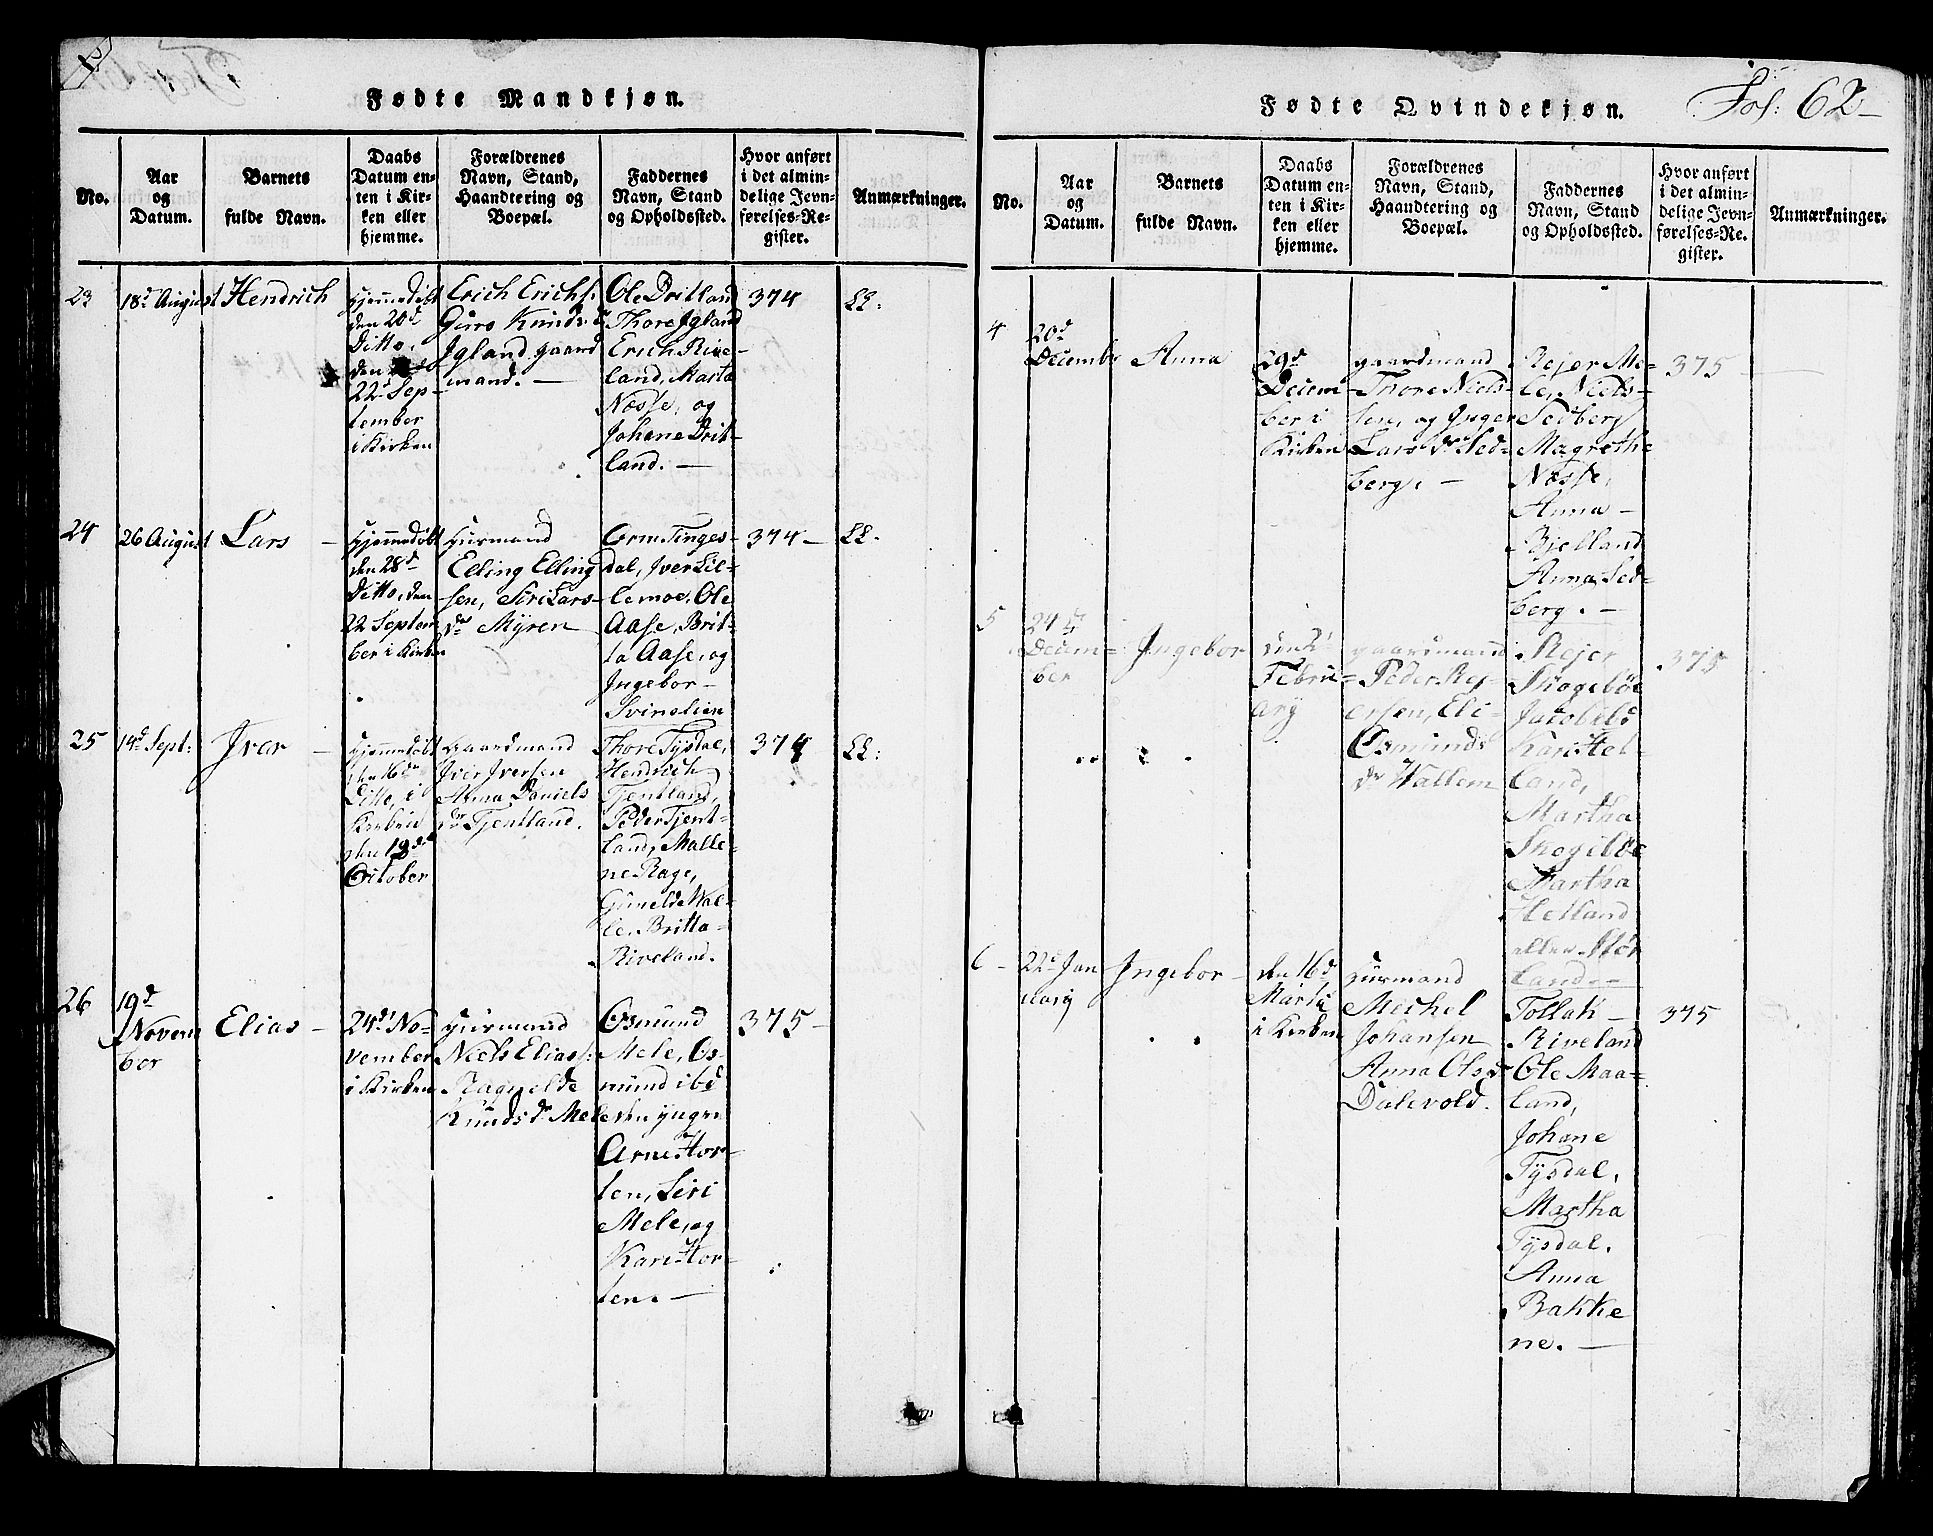 Fødte Mandkjøn.
No.
Aar
og
Datum.
Barnets
fulde Navn.
Daabs
Datum en-
ten i Kir-
ken eller
hjemme.
Forældrenes
Navn, Stand,
Haandtering og
Boepæl.
Faddernes
Navn, Stand
og Opholdssted.
Hvor anført
i det almin-
delige Jevn-
førelses-Re-
gister.
Anmærkninger.
23
18d August
Hendrich
Hjemmedøbt
den 20d
Ditto,
den
22d Sep-
tember
i Kirken
Erich Erichs:
Guro Knuds d
Igland. gaard
mand. —
Ole Dritland
Thore Igland
Erich Rive-
land, Marta
Næsse, og
Johane Drit-
land. —
374
LL:
24
26 August
Lars —
Hjemmedøbt
den 28d
Ditto, den
22 Septem
ber i Kirken
Huusmand
Elling Elling
sen, Siri Lars-
dr Myren
Orm Tinges-
dal, Iver Lil-
lemoe, Ole
Aase, Brit-
ta Aase, og
Ingebor —
Svinelien
374 —
LL.
25
14d Sept:
Ivar —
Hjemmedøbt
den 16d
Ditto, i
Kirken
den 13d
October
Gaardmand
Iver Iversen
Anna Daniels
dr Tjentland.
Thore Tysdal,
Hendrich
Tjentland,
Peder Tjent-
land, Malle-
ne Rage,
Gunelde Wal-
le, Britta-
Riveland.
374
LL:
26
19d
Novem
ber
Elias —
24d No-
vember
i Kirken
Huusmand
Niels Eliass:
Ragnelde
Knuds dr Mele
Osmund
Mele, Os-
mund ibd
den yngre
Arne Hor-
ten, Siri
Mele, og
Kari Hor-
ten. —
375 —
Fødte Qvindekjøn.
Fol: 62 —
No.
Aar
og
Datum.
Barnets
fulde Navn.
Daabs
Datum en-
ten i Kir-
ken eller
hjemme.
Forældrenes
Navn, Stand,
Haandtering og
Boepæl.
Faddernes
Navn, Stand
og Opholdssted.
Hvor anført
i det almin-
delige Jevn-
førelses-Re-
gister.
Anmærkninger.
4
20d
Decembr
Anna
29d
Decem-
ber i
Kirken
gaardmand
Thore Niels-
sen, og Inger
Lars dr Sed-
berg. —
Rejer Me-
le, Niels-
Sedberg
Magrethe
Næsse,
Anna —
Bjelland
Anna Sed-
berg. —
375 —
5
24d
Decem-
ber
Ingebor
den 2d
Febru-
ary
gaardmand
Peder Rej-
ersen, Eli-
Osmunds
dr Wallem
Rejer
Skogebøe
Jacob ibd
Kari Hel-
land,
Martha
Skogebøe
Martha
Helland
Land. —
375
6 —
22d Jan
uary
Ingebor —
den 16d
Marti
i Kirken
Huusmand
Mechel
Johansen
Anna Ols d
Dalevold.
Tollak —
Riveland
Ole Maa-
land,
Johane
Tysdal,
Martha
Tysdal.
Anna
Bakke
ne. —
375